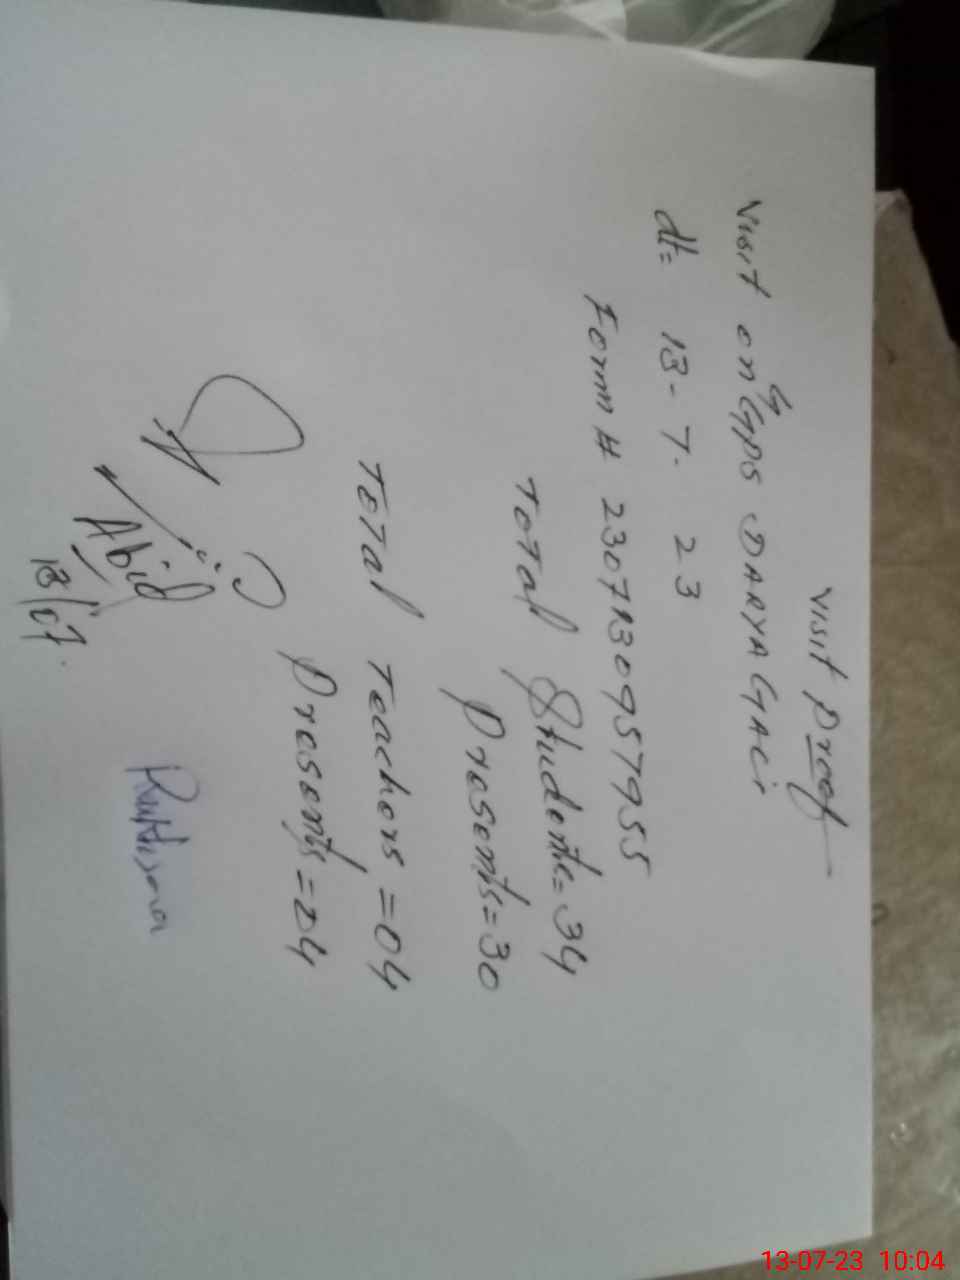 Visit Proof
Visit on GGPS DARYA GACI
dt= 13-7-23
Form # 2307130957955
Total Students=34
Presents=30
Total Teachers=04
Presents=04
Abid
13/07
Rukhsana
13-07-23 10:04